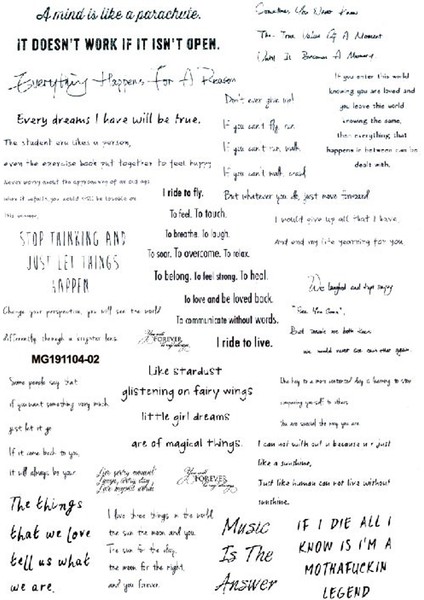 A mind is like a parachute.
IT DOESN'T WORK IF IT ISN'T OPEN.
Sometimes You Never Know
The True Value Of A Moment
Until It Becomes A Memory
Everything Happens For A Reason
If you enter this world
knowing you are loved and
you leave this world
knowing the same,
then everything that
happens in between can be
dealt with.
Don't ever give up!
If you can't fly, run,
If you can't run, walk,
If you can't walk, crawl
But whatever you do, just move forward
Every dreams I have will be true.
The student era likes a person,
even the exercise book put together to feel happy
Never worry about the approaching of an old age
when it unfolds, you would still be
this
I ride to fly.
To feel. To touch.
To breathe. To laugh.
To soar. To overcome. To relax.
To belong. To feel strong. To heal.
To love and be loved back.
To communicate without words.
I ride to live.
I would give up all that I have
And end my life yearning for you
STOP THINKING AND
JUST LET THINGS
HAPPEN
We laughed and kept saying
"See You Soon",
But inside we both knew
we would never see each other again.
Change your perspective, you will see the world
differently through a crayster lens
You will
FOREVER
be my always
MG191104-02
Like stardust
glistening on fairy wings
little girl dreams
are of magical things.
Some people say that
if you want something very much,
just let it go
If it came back to you,
it will always be your.
The key to a more contented day is having to stop
comparing yourself to others.
You are special the way you are.
I can not with out u because u r just
like a sunshine,
Just like human can not live without
sunshine.
Live every moment
Laugh every day
Love beyond words
You will
FOREVER
be my always
The things
that we love
tell us what
we are.
I love three things in the world
the sun the moon and you
The sun for the day,
the moon for the night,
and you forever.
Music
Is The
Answer
IF I DIE ALL I
KNOW IS I'M A
MOTHAFUCKIN
LEGEND